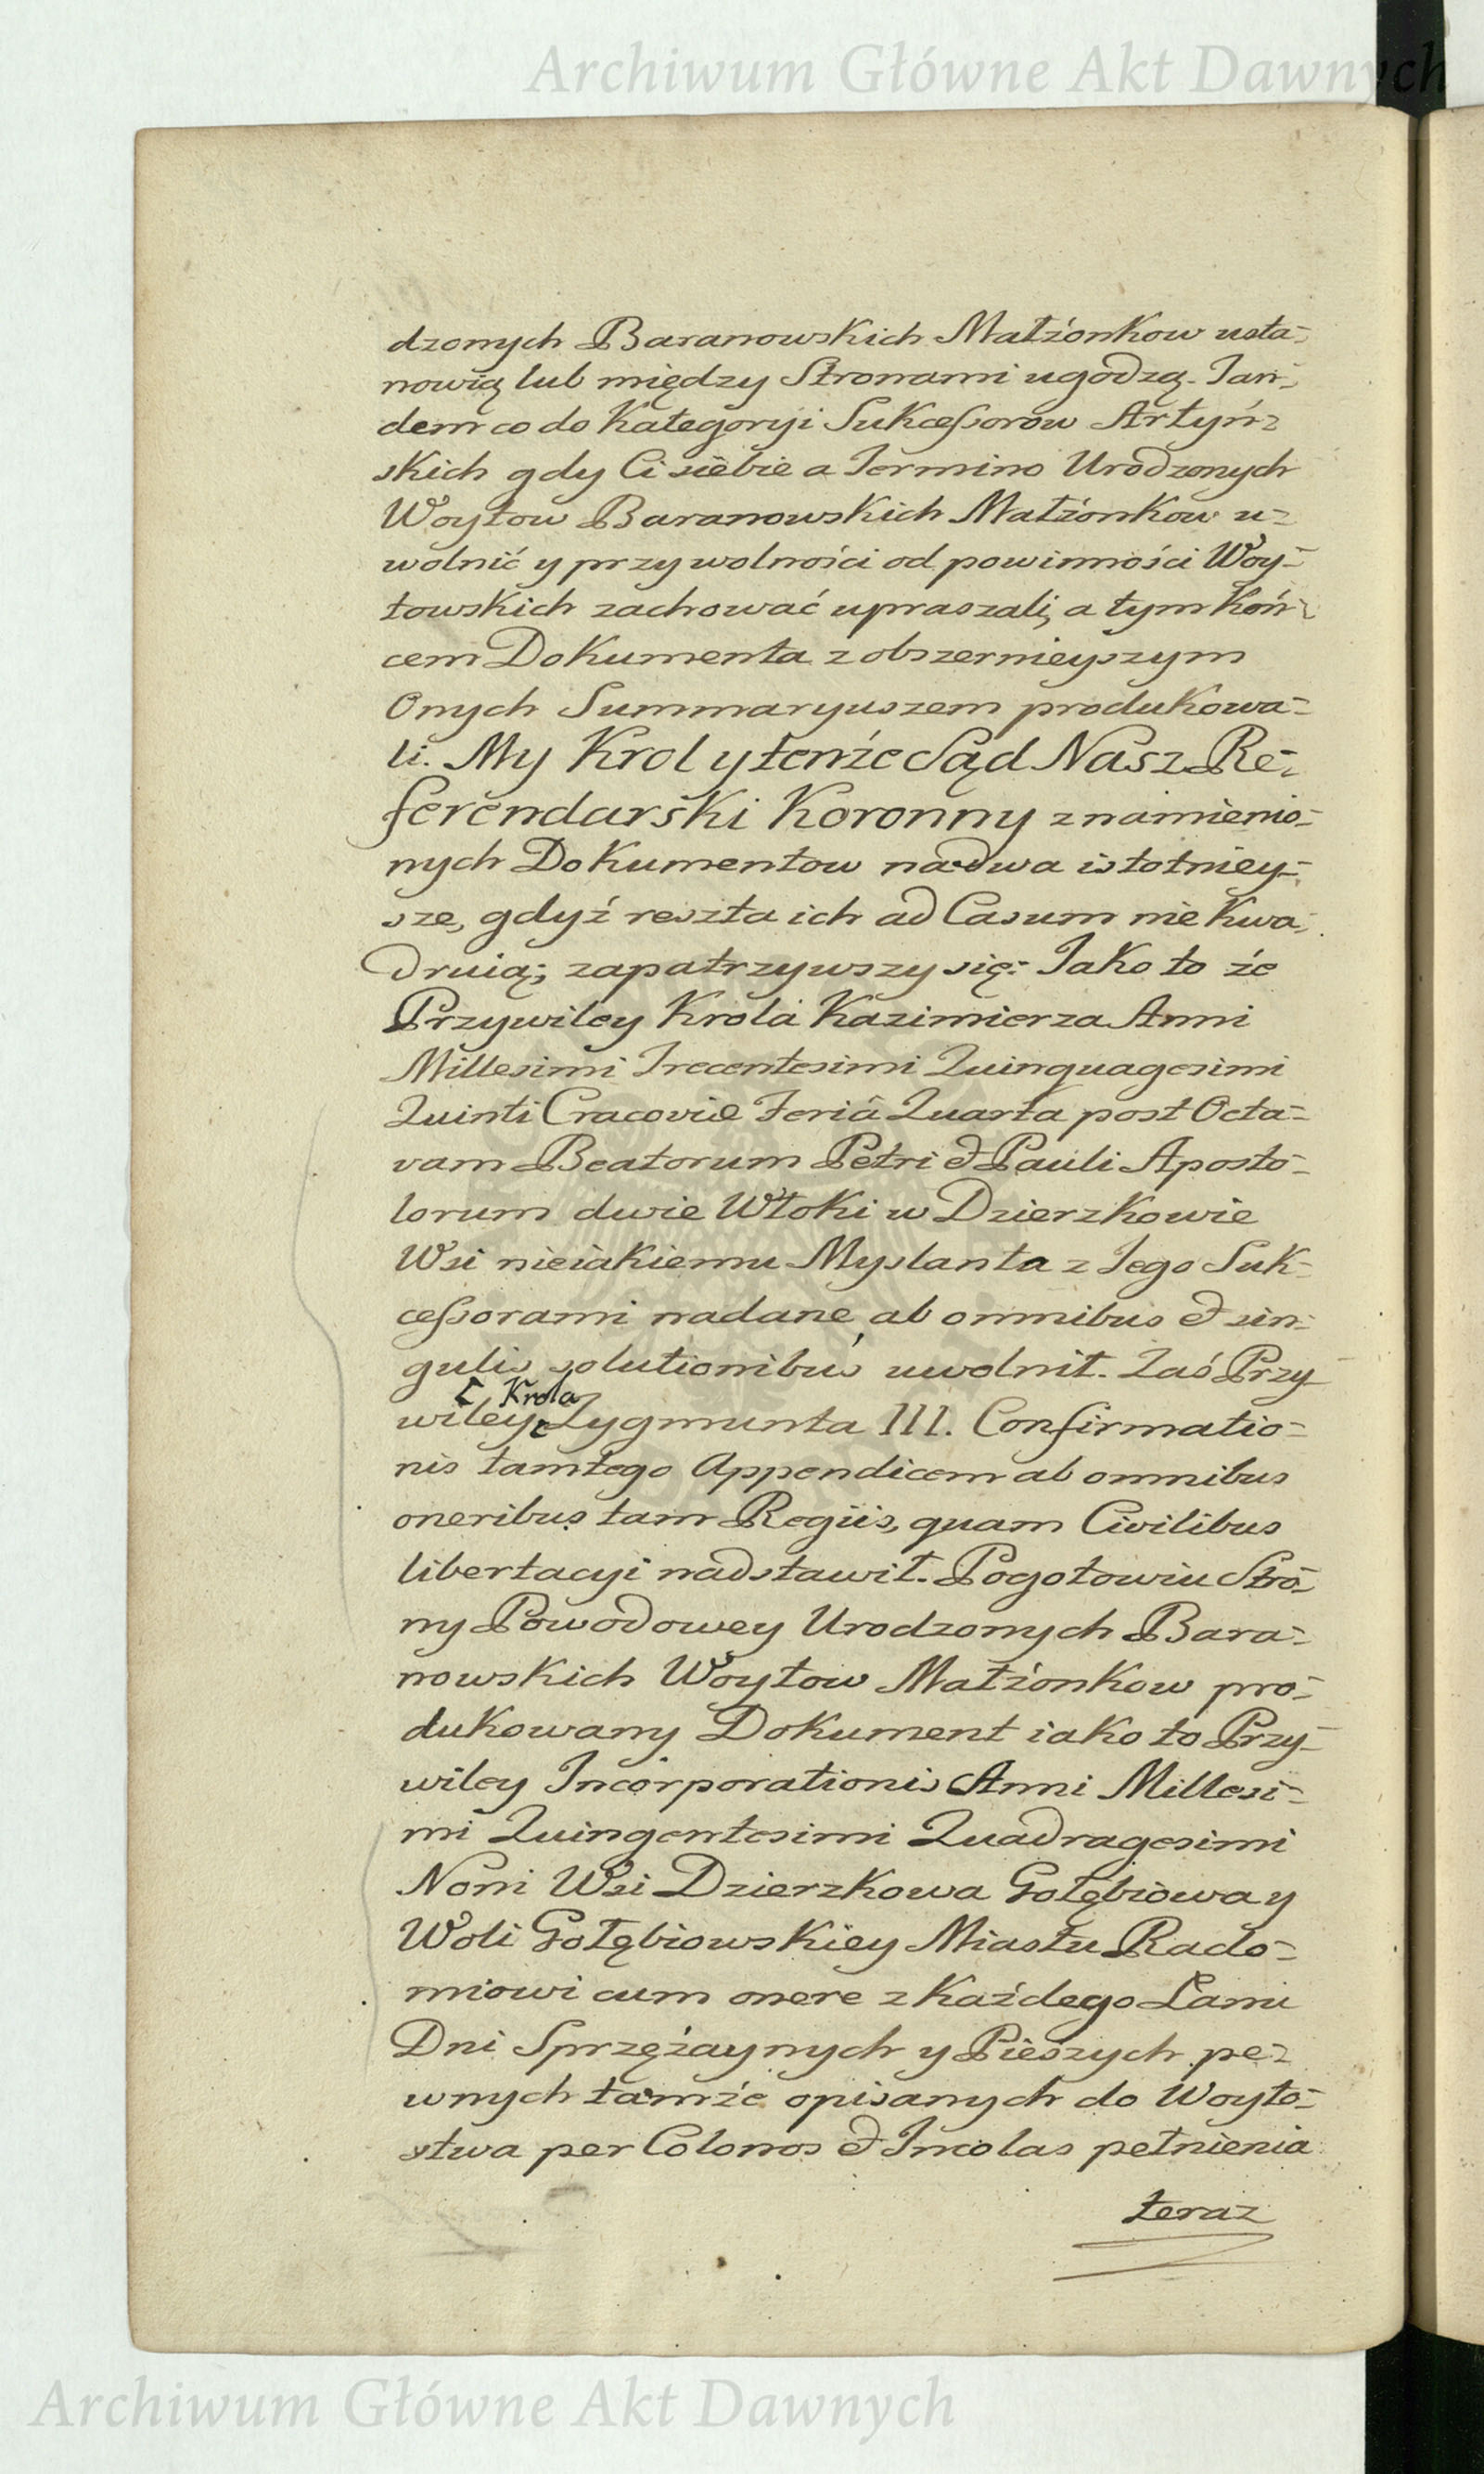 Archiwum Główne Akt Dawnych
dzonych Baranowskich Małżonkow usta-
nowią lub między Stronami ugodzą. Tan-
dem co do Kategoryi Sukcessorow Artyń-
skich gdy Ci siebie a Termino Urodzonych
Woytow Baranowskich Małżonkow u-
wolnić y przy wolności od powinności Woy-
towskich zachować upraszali, a tym Koń-
cem Dokumenta z obszernieyszym
Onych Summaryuszem produkowa-
li. My Krol y tenże Sąd Nasz Re-
ferendarski Koronny znamienio-
nych Dokumentow na dwa istotniey-
sze, gdyż reszta ich ad Casum nie kwa-
druią; zapatrzywszy się: Jako to że
Przywiley Krola Kazimierza Anni
Millesimi Trecentesimi Quinquagesimi
Quinti Cracoviæ Feriâ Quarta post Octa-
vam Beatorum Petri & Pauli Aposto-
lorum dwie Włoki w Dzierzkowie
Wsi nieiakiemu Myslanta z Jego Suk-
cessorami nadane, ab omnibus & sin-
gulis solutionibus uwolnił. Zaś Przy-
Krola
wiley Zygmunta III. Confirmatio-
nis tamtego Appendicem ab omnibus
oneribus tam Regiis, quam Civilibus
libertacyi nadstawił. Pogotowiu Stro-
ny Powodowey Urodzonych Bara-
nowskich Woytow Małżonkow pro-
dukowany Dokument iako to Przy-
wiley Incorporationis Anni Millesi-
mi Quingentesimi Quadragesimi
Noni Wsi Dzierzkowa Gołębiowa y
Woli Gołębiowskiey Miastu Rado-
miowi cum onere z każdego Łanu
Dni Sprzężaynych y Pieszych pe-
wnych tamże opisanych do Woyto-
stwa per Colonos & Incolas pełnienia
teraz
Archiwum Główne Akt Dawnych